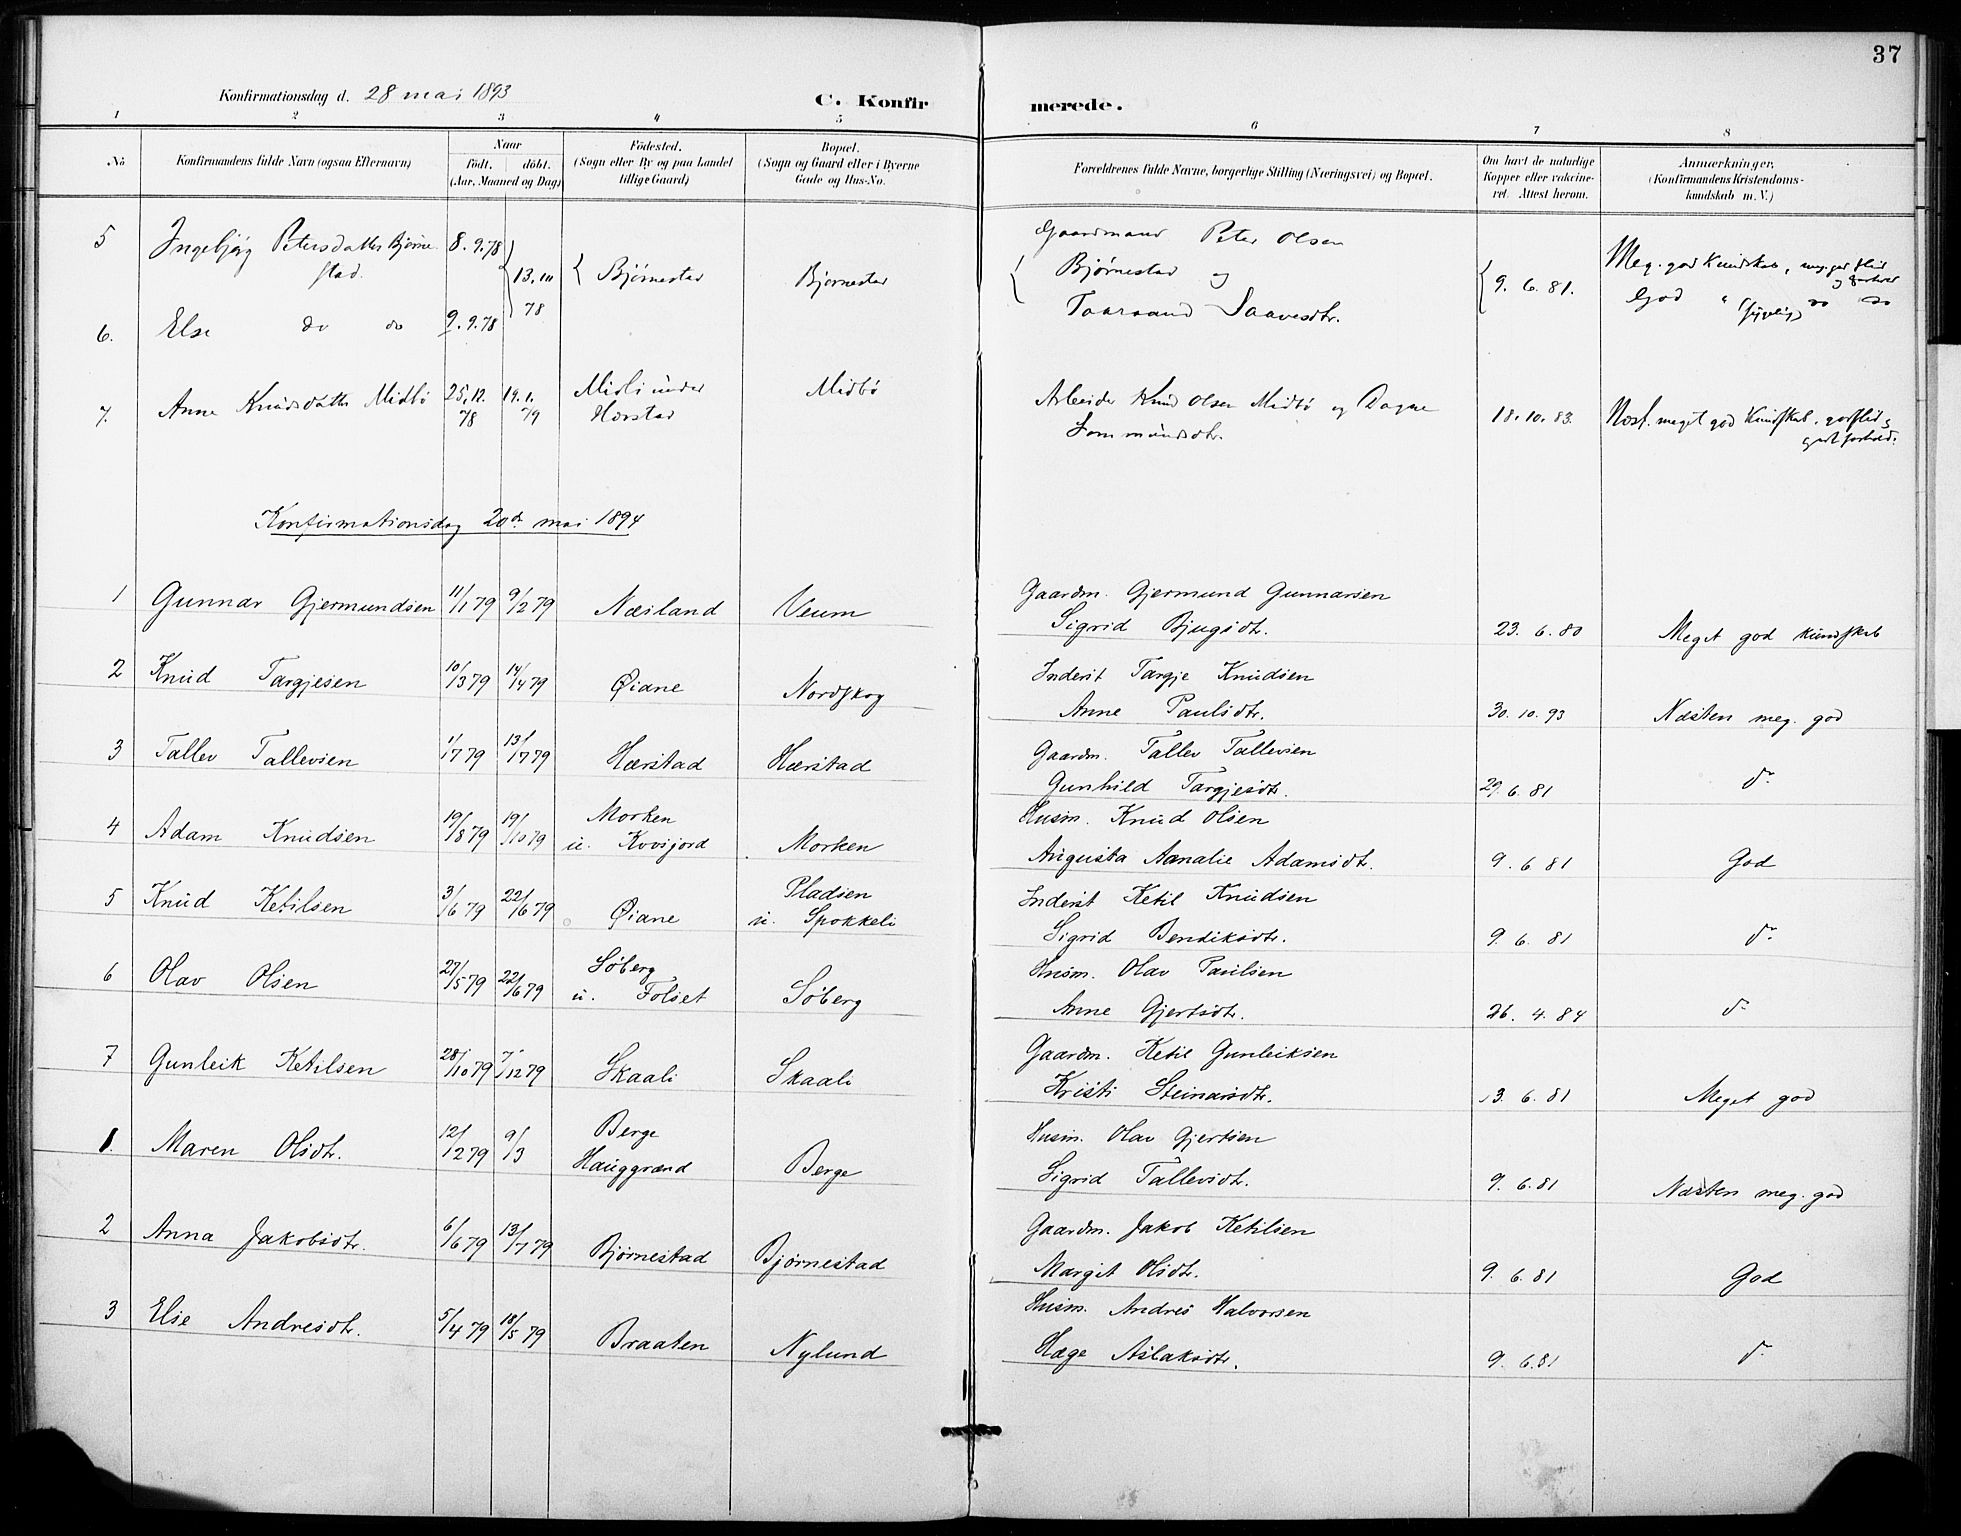 37
Konfirmationsdag d. 28 mai 1893
C. Konfir merede.
1 2 3 4 5 6 7 8
No
Konfirmandens fulde Navn (ogsaa Efternavn)
Naar
født. døbt.
(Aar, Maaned og Dag)
Fødested.
(Sogn eller By og paa Landet
tillige Gaard)
Bopæl.
(Sogn og Gaard eller i Byerne
Gade og Hus-No.
Forældrenes fulde Navne, borgerlige Stilling (Næringsvei) og Bopæl.
Om havt de naturlige
Kopper eller vakcine-
ret. Attest herom.
Anmærkninger,
(Konfirmandens Kristendoms-
kundskab m. V.)
5 Ingebjørg Petersdatter Bjørne- 8.9.78 Gaardmand Peter Olsen
stad. 13.10 Bjørnestad Bjørnestad Bjørnestad og 9.6.81. Meg. god Kundskab, meg. god flid
78 Taaraand Saavesdtr. God "
6. Else do do 9.9.78
7. Anne Knudsdatter Midbø 25.12. 19.1. Midli under Midbø Arbeider Knud Olsen Midbø og Dagne 18.10.83. Næst. meget god Kundskab, god flid og
78 79 Hærstad Sommundsdtr. godt forhold.
Konfirmationsdag 20de mai 1894
1 Gunnar Gjermundsen 11/1 79 9/2 79 Næsland Veum Gaardm. Gjermund Gunnarsen
Sigrid Bjugsdtr. 23.6.80 Meget god kundskab
2 Knud Targjesen 10/3 79 14/4 79 Øiane Nordskog Inderst Targje Knudsen
Anne Paulsdtr. 30.10.93 Næsten meg. god
3 Tallev Tallevsen 1/7 79 13/7 79 Hærstad Hærstad Gaardm. Tallev Tallevsen
Gunhild Targjesdtr. 29.6.81 do
4 Adam Knudsen 19/8 79 19/10 79 Morken
u. Kvvisjord Morken Husm. Knud Olsen
Augusta Aanalie Adamsdtr. 9.6.81 God
5 Knud Ketilsen 3/6 79 22/6 79 Øiane Pladsen
u. Spokkeli Inderst Ketil Knudsen
Sigrid Bendiksdtr. 9.6.81 do
6 Olav Olsen 27/5 79 22/6 79 Søberg
u. Folset Søberg Husm. Olav Paulsen
Anne Gjertsdtr. 26.4.84 do
7 Gunleik Ketilsen 28/10 79 7/12 79 Skaali Skaali Gaardm. Ketil Gunleiksen
Kristi Steinarsdtr. 13.6.81 Meget god
1. Maren Olsdtr. 12/2 79 9/3 Berge
Hauggrænd Berge Husm. Olav Gjertsen
Sigrid Tallevsdtr. 9.6.81 Næsten meg. god
2 Anna Jakobsdtr. 6/6 79 13/7 79 Bjørnestad Bjørnestad Gaardm. Jakob Ketilsen
Margit Olsdtr. 9.6.81 God
3 Else Andresdtr. 5/4 79 18/5 79 Braaten Nylund Husm. Andres Halvorsen
Hæge Aslaksdtr. 9.6.81 do